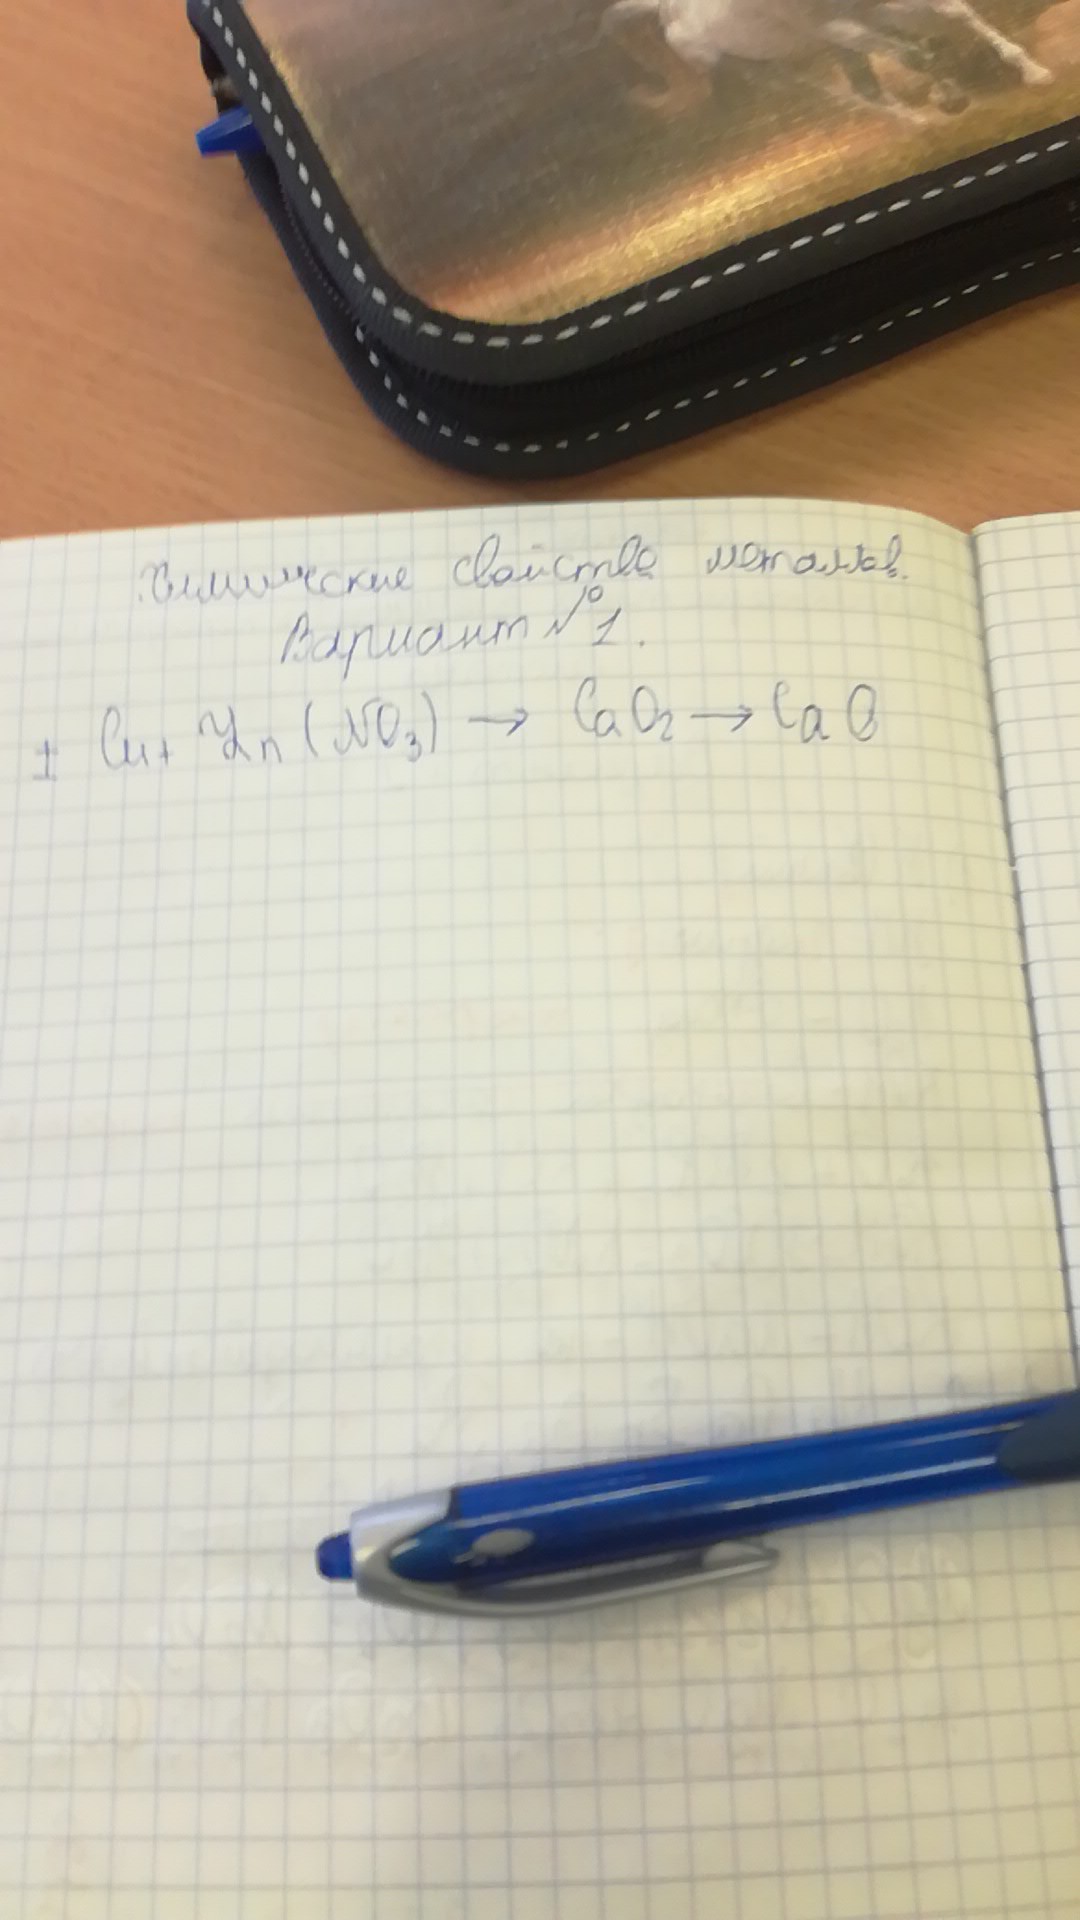 Химические свойства металлов.
Вариант №1.
1 Cu+ Zn(NO3) → CaO2 → CaO